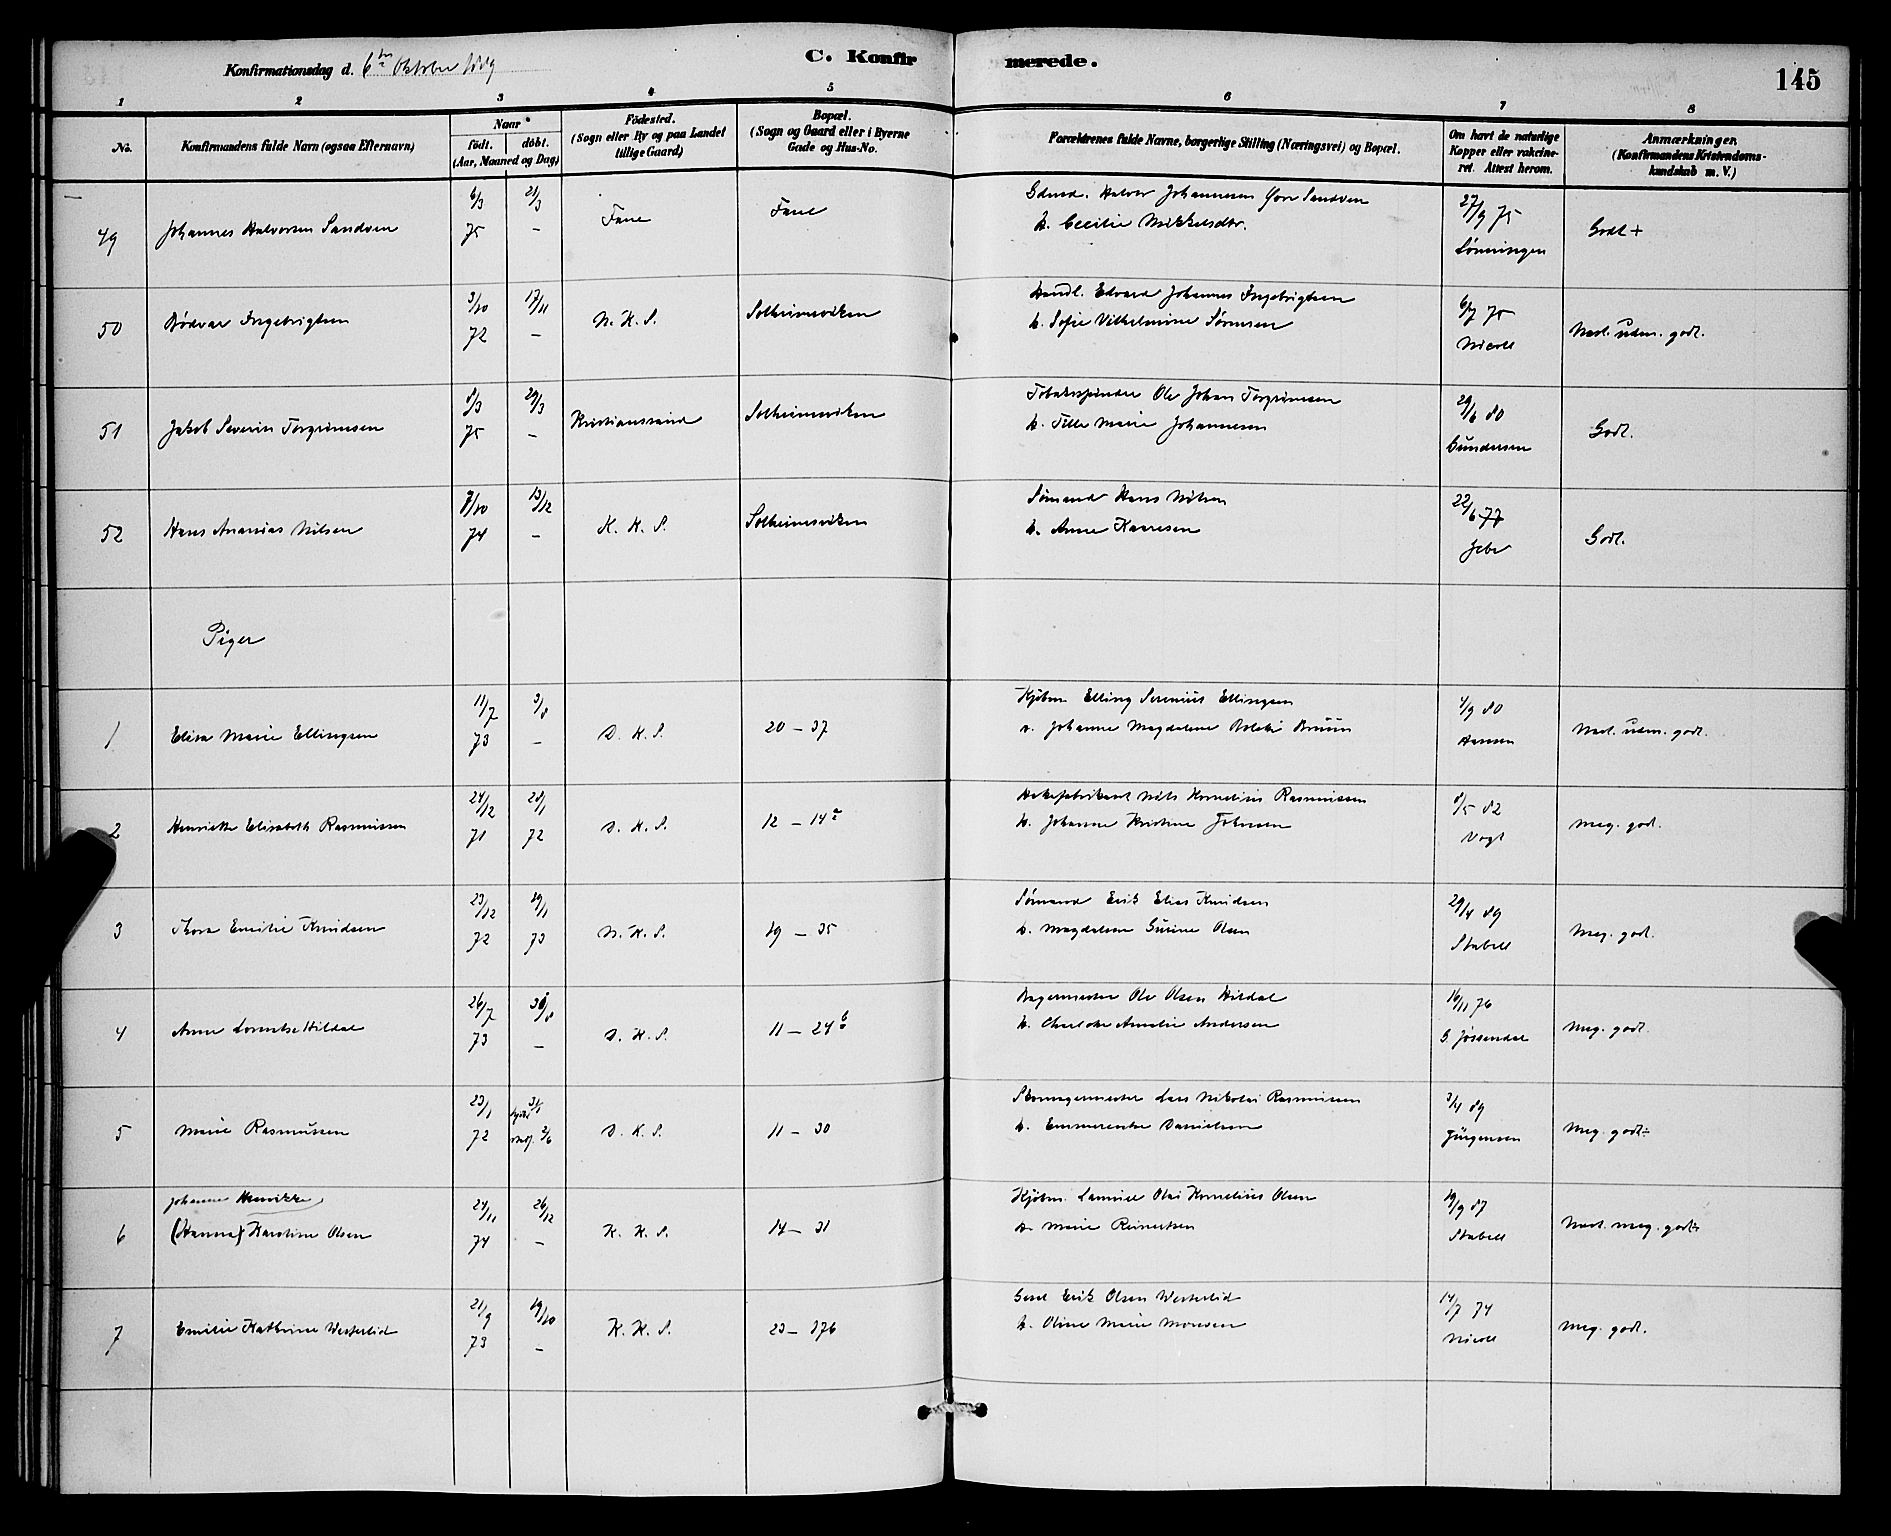 Konfirmationsdag d. 6te Oktober 1889
C. Konfirmerede.
145
1 2 3 4 5 6 7 8
No.
Konfirmandens fulde Navn (ogsaa Efternavn)
Naar
födt. döbt.
(Aar, Maaned og Dag)
Födested.
(Sogn eller By og paa Landet
tillige Gaard)
Bopæl.
(Sogn og Gaard eller i Byerne
Gade og Hus-No.
Forældrenes fulde Navne, borgerlige Stilling (Næringsvei) og Bopæl.
Om havt de naturlige
Kopper eller vakcine-
ret. Attest herom.
Anmærkninger.
(Konfirmandens Kristendoms-
kundskab m. V.)
49 Johannes Halvorsen Sandven 6/3 75 21/3 – Fane Fane
Halvor Johannesen Sandven
h. Cecilie Mikkelsdtr.
27/9 75 Lönningen Godt +
50 Bödvar Ingebrigtsen 3/10 72 17/11 – N. K. S. Solheimsviken
Handl. Edvard Johannes Ingebrigtsen
h. Sofie Vilhelmine Sörensen
6/7 75 Nicoll Next. udm. godt.
51 Jakob Severin Torgrimsen 8/3 75 29/3 – Kristianssund Solheimsviken
Tobakspinder Ole Johan Torgrimsen
h. Marie Johannesen
29/6 80 Gundersen Godt.
52 Hans Ananias Nilsen 9/10 74 13/12 – K. K. S. Solheimsviken
Sömand Hans Nilsen
h. Anne Kaaresen
22/6 77 Jebe Godt.
Piger
1 Elisa Marie Ellingsen 11/7 73 3/8 – D. K. S. 20 – 37
Kjöbm. Elling Severius Ellingsen
h. Johanne Magdalene Bolette Bruun
4/9 80 Hansen Next. udm. godt.
2 Henriette Elisabeth Rasmussen 24/12 71 28/1 72 D. K. S. 12 – 14 a
Nils Kornelius Rasmussen
h. Johanne Kristine Johnsen
8/5 82 Vogt Meg. godt.
3 Thora Emilie Knudsen 23/12 72 19/1 73 N. K. S. 19 – 35
Sömand Erik Elias Knudsen
h. Magdalene Gurine Olsen
29/4 89 Stabell Meg. godt.
4 Anna Lorentse Hildal 26/7 73 30/8 – D. K. S. 11 – 24 b
Bagermester Ole Olsen Hildal
h. Charlotte Amalie Andersen
16/11 76 G. Jössendal Meg. godt.
5 Marie Rasmussen 23/1 72 31/1 2/6 D. K. S. 11 – 30
Skomagermester Lars Nikolai Rasmussen
h. Emmerentse Danielsen
3/4 89 Jürgensen Meg. godt ÷
6 Johanne Henrikke
(Hanna) Karoline Olsen 24/11 74 26/12 – K. K. S. 14 – 31
Kjöbm. Olai Kornelius Olsen
h. Marie Reinertsen
19/9 87 Stabell Next. meg. godt
7 Emilie Kathrine Westerlid 21/9 73 19/10 – K. K. S. 23 – 376
Erik Olsen Westerlid
h. Oline Marie Monssen
14/7 74 Nicoll Meg. godt.